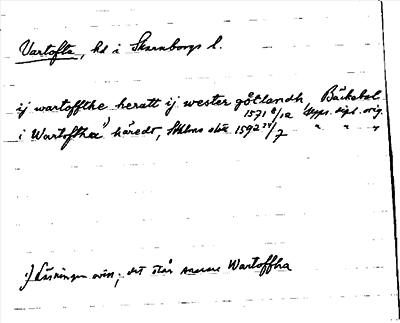 Vartofta, hd i Skaraborgs l.
ij wartoffthe heratt ij wester götlandh, Bäckebol
1571 8/12 Upps. dipl. orig.
i Wartofthaa¹) häredt, Sthlms slott 1592 24/7 " " "
¹) Läsningen oviss; det står snarare Wartoffha